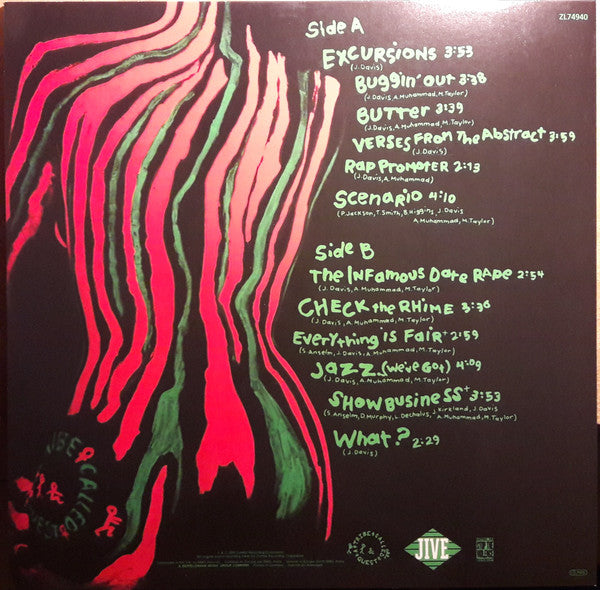 ZL74940
Side A
EXCURSIONS 3:53
(J. Davis)
Buggin' Out 3:38
(J. Davis, A. Muhammad, M. Taylor)
BUTTER 3:39
(J. Davis, A. Muhammad, M. Taylor)
VERSES FROM The Abstract 3:59
(J. Davis)
RAP PROMOTER 2:13
(J. Davis, A. Muhammad)
SCENARIO 4:10
(P. Jackson, T. Smith, B. Higgins, J. Davis
A. Muhammad, M. Taylor)
Side B
The INFAMOUS Date RAPE 2:54
(J. Davis, A. Muhammad, M. Taylor)
CHECK the RHIME 3:36
(J. Davis, A. Muhammad, M. Taylor)
EveryThing is FAIR+ 2:59
(S. Anselm, J. Davis, A. Muhammad, M. Taylor)
JAZZ (We've Got) 4:09
(J. Davis, A. Muhammad, M. Taylor)
SHOW BUSINESS+ 3:53
(S. Anselm, D. Murphy, L. Dechalus, J. Kirkland, J. Davis
A. Muhammad, M. Taylor)
What? 2:29
(J. Davis)
A TRIBE CALLED QUEST
JIVE